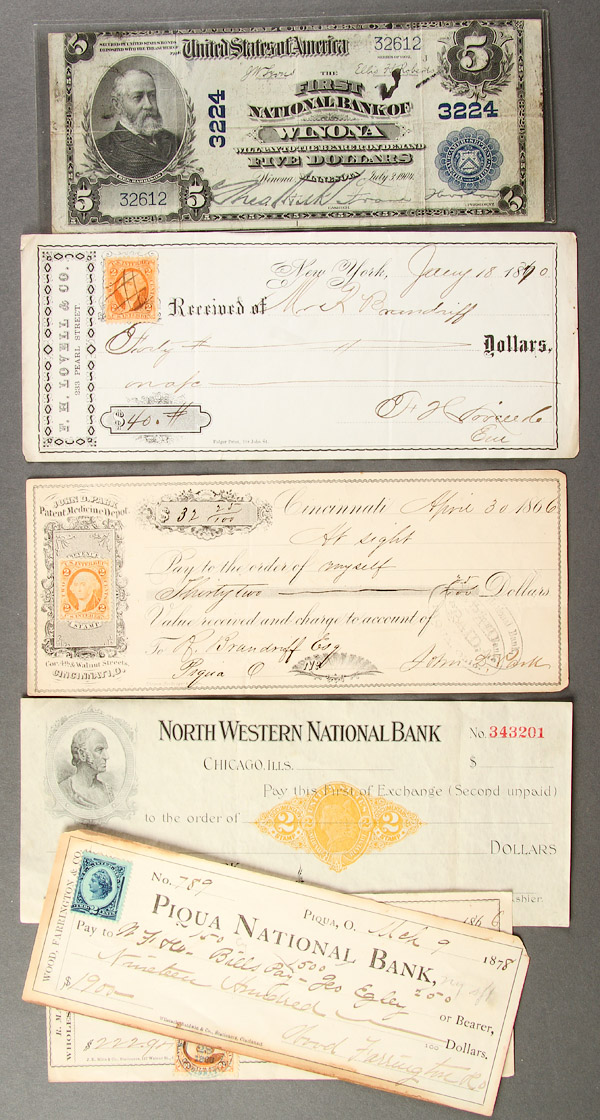 SECURED BY UNITED STATES BONDS
DEPOSITED WITH THE TREASURER
United States of America
32612
SERIES OF 1902
5
THE
FIRST
NATIONAL BANK OF
WINONA
3224
3224
WILL PAY TO THE BEARER ON DEMAND
FIVE DOLLARS
Winona MINNESOTA July 3, 1904
32612
5
5
5
F. H. LOVELL & CO.
233 PEARL STREET
New York, Jany 18 1870
Received of Mr R Brandriff
Forty # " Dollars.
on a/c
$ 40. #
JOHN D. PARK
Patent Medicine Depot
Cor. 4th & Walnut Streets,
CINCINNATI, O.
STAMP
$ 32 25/100
Cincinnati April 30 1866
At sight
Pay to the order of myself
Thirty two 25/100 Dollars
Value received and charge to account of
To R. Brandriff Esq
Piqua O
John D. Park
NORTH WESTERN NATIONAL BANK
No. 343201
CHICAGO, ILLS.
$
Pay this First of Exchange (Second unpaid)
to the order of
2
2
DOLLARS
Cashier.
WOOD, FARRINGTON & CO.
No. 789
PIQUA, O. Mch 9 1878
PIQUA NATIONAL BANK,
Pay to
Bills Pay Geo
or Bearer,
Nineteen Hundred
$1900
100 Dollars.
Wood Farrington & Co
1866
WHOLES
$222.90